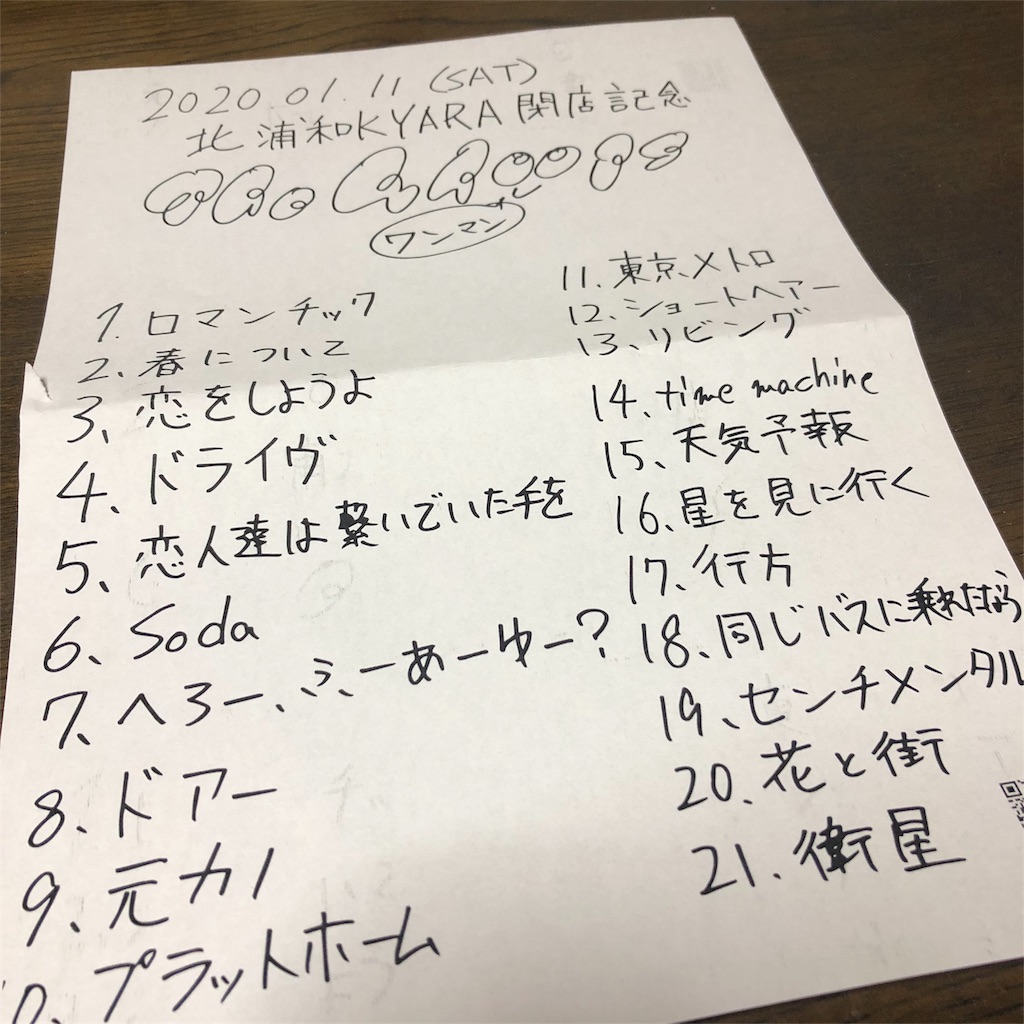 2020 01.11 (SAT)
北浦和KYARA 閉店記念
ワンマン
1. ロマンチック
2. 春について
3、恋をしようよ
4、ドライヴ
5、恋人達は繋いでいた手を
6、Soda
7、へろー、ふーあーゆー?
8、ドアー
9、元カノ
0、プラットホーム
11. 東京メトロ
12. ショートヘアー
13、リビング
14. time machine
15、天気予報
16、星を見に行く
17、行方
18、同じバスに乗れたなら
19、センチメンタル
20. 花と街
21. 衛星